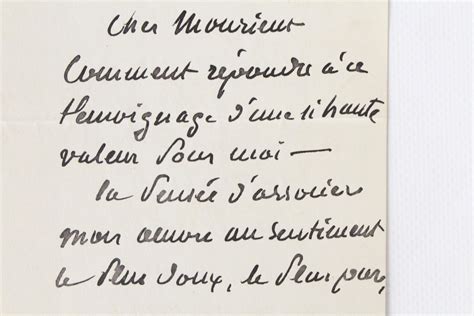 Cher Monsieur
Comment répondre à ce
témoignage d'une si haute
valeur pour moi —
la pensée d'associer
mon œuvre au sentiment
le plus doux, le plus pur,